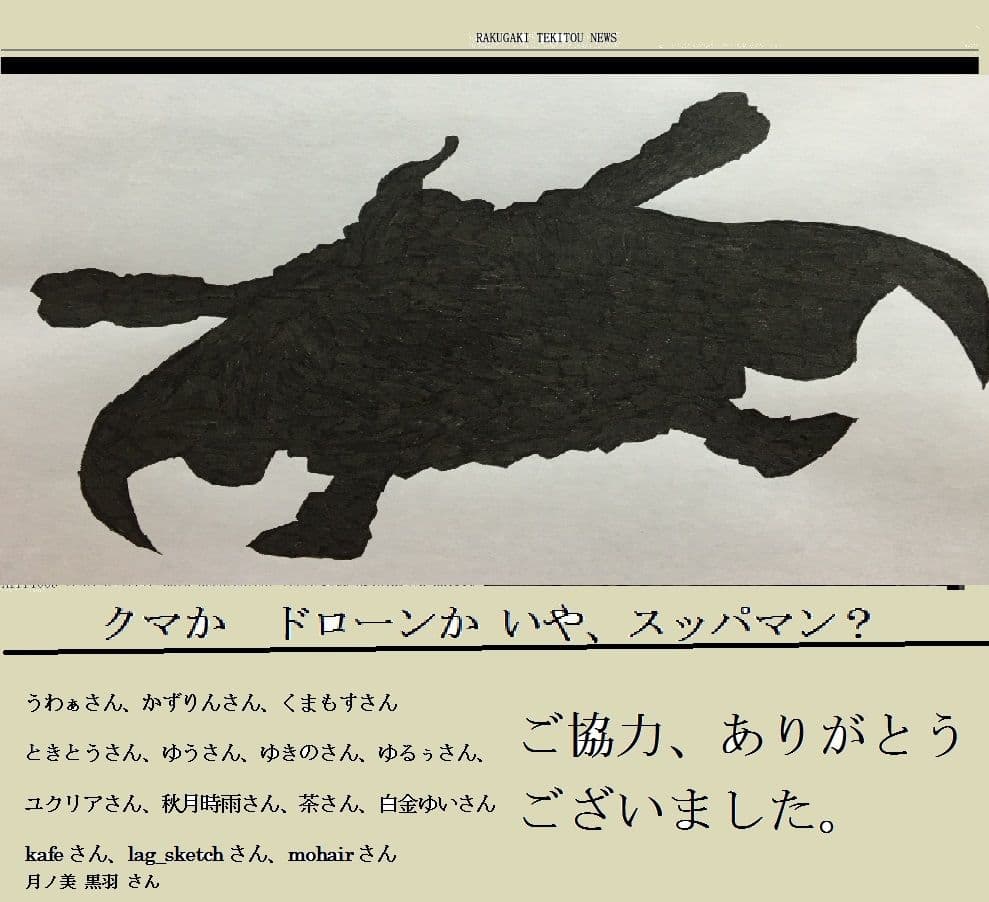 RAKUGAKI TEKITOU NEWS
クマか ドローンか いや、スッパマン？
うわぁさん、かずりんさん、くまもすさん
ときとうさん、ゆうさん、ゆきのさん、ゆるぅさん、
ユクリアさん、秋月時雨さん、茶さん、白金ゆいさん
kafe さん、lag_sketch さん、mohair さん
月ノ美 黒羽 さん
ご協力、ありがとう
ございました。